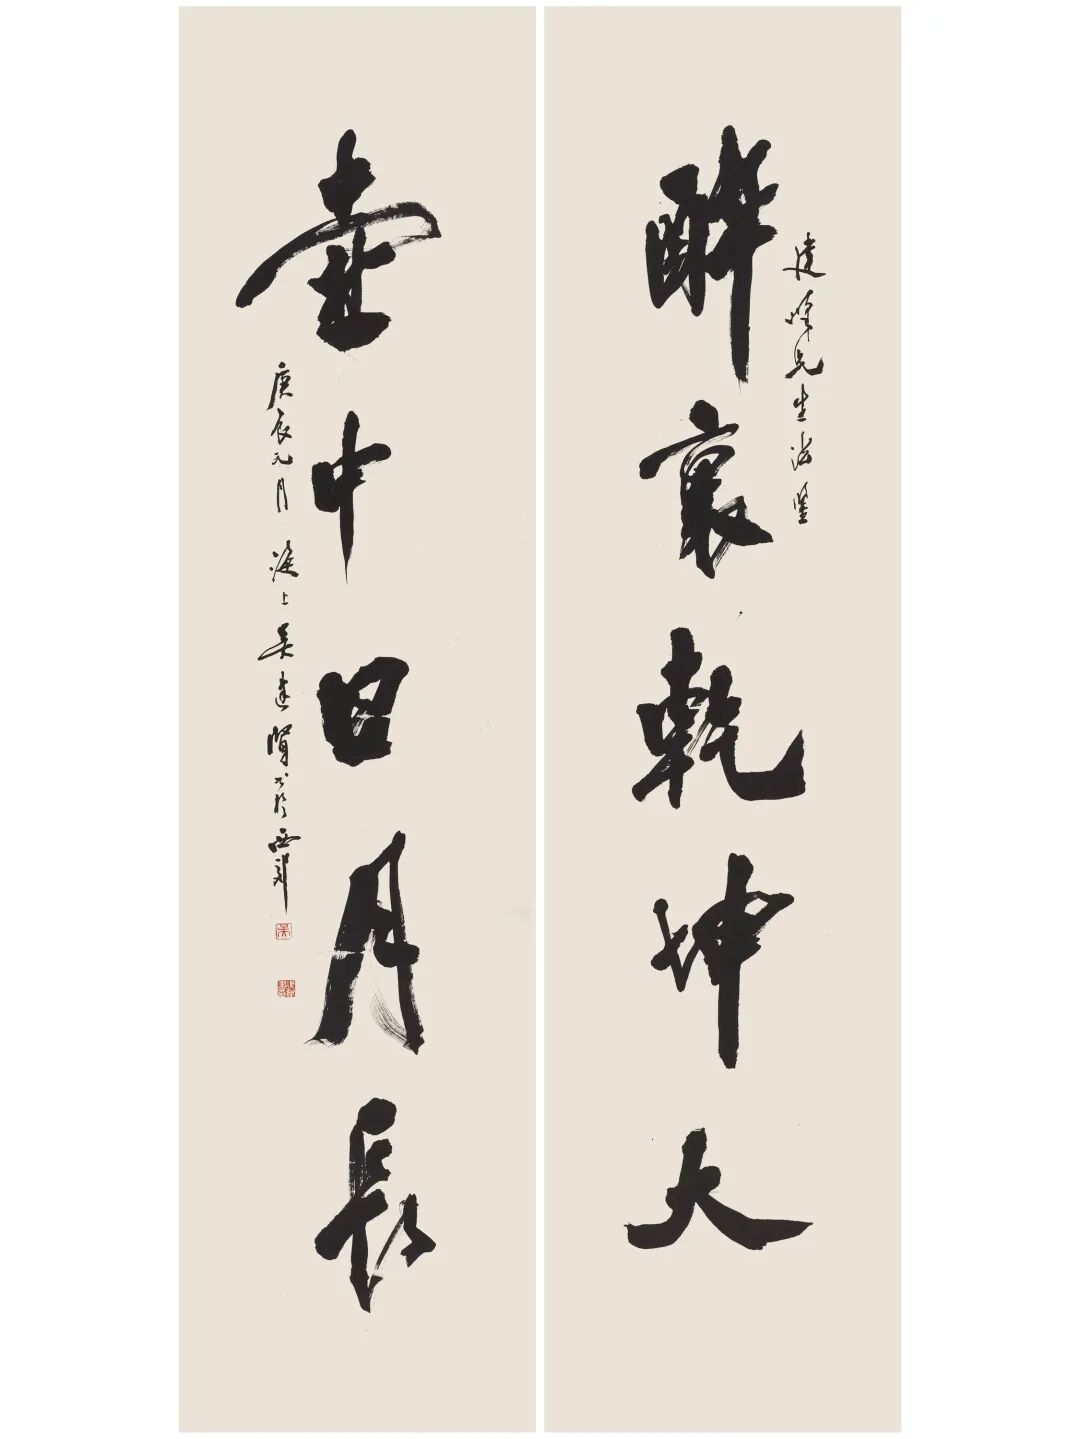 醉裏乾坤大
建峰先生法鉴
壺中日月長
庚辰元月 滬上吴建賢书於西郊
吴